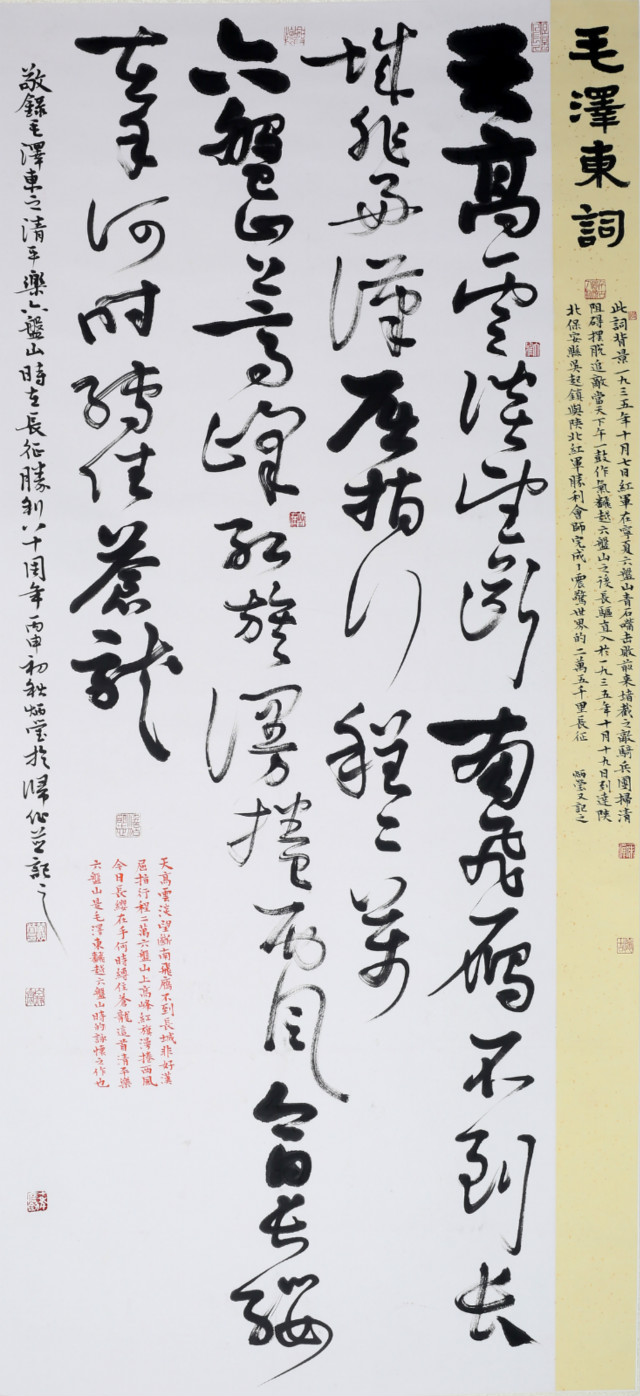 毛澤東詞
此詞背景一九三五年十月七日紅軍在寧夏六盤山青石嘴击敗前来堵截之敵騎兵團掃清
阻碍摆脱追敵當天下午一鼓作氣翻越六盤山之後長驅直入於一九三五年十月十九日到達陝
北保安縣吴起鎮與陝北紅軍勝利會師完成了震驚世界的二萬五千里長征 炳瑩又記之
天高雲淡望斷南飛雁不到長
城非好漢屈指行程二萬
六盤山上高峰紅旗漫捲西風今日長纓
在手何时縛住蒼龍
天高雲淡望斷南飛雁不到長城非好漢
屈指行程二萬六盤山上高峰紅旗漫捲西風
今日長纓在手何時縛住蒼龍這首清平樂
六盤山是毛澤東翻越六盤山時的詠懷之作也
敬録毛澤東之清平樂六盤山時在長征勝利八十周年丙申初秋炳瑩於歸化並記之